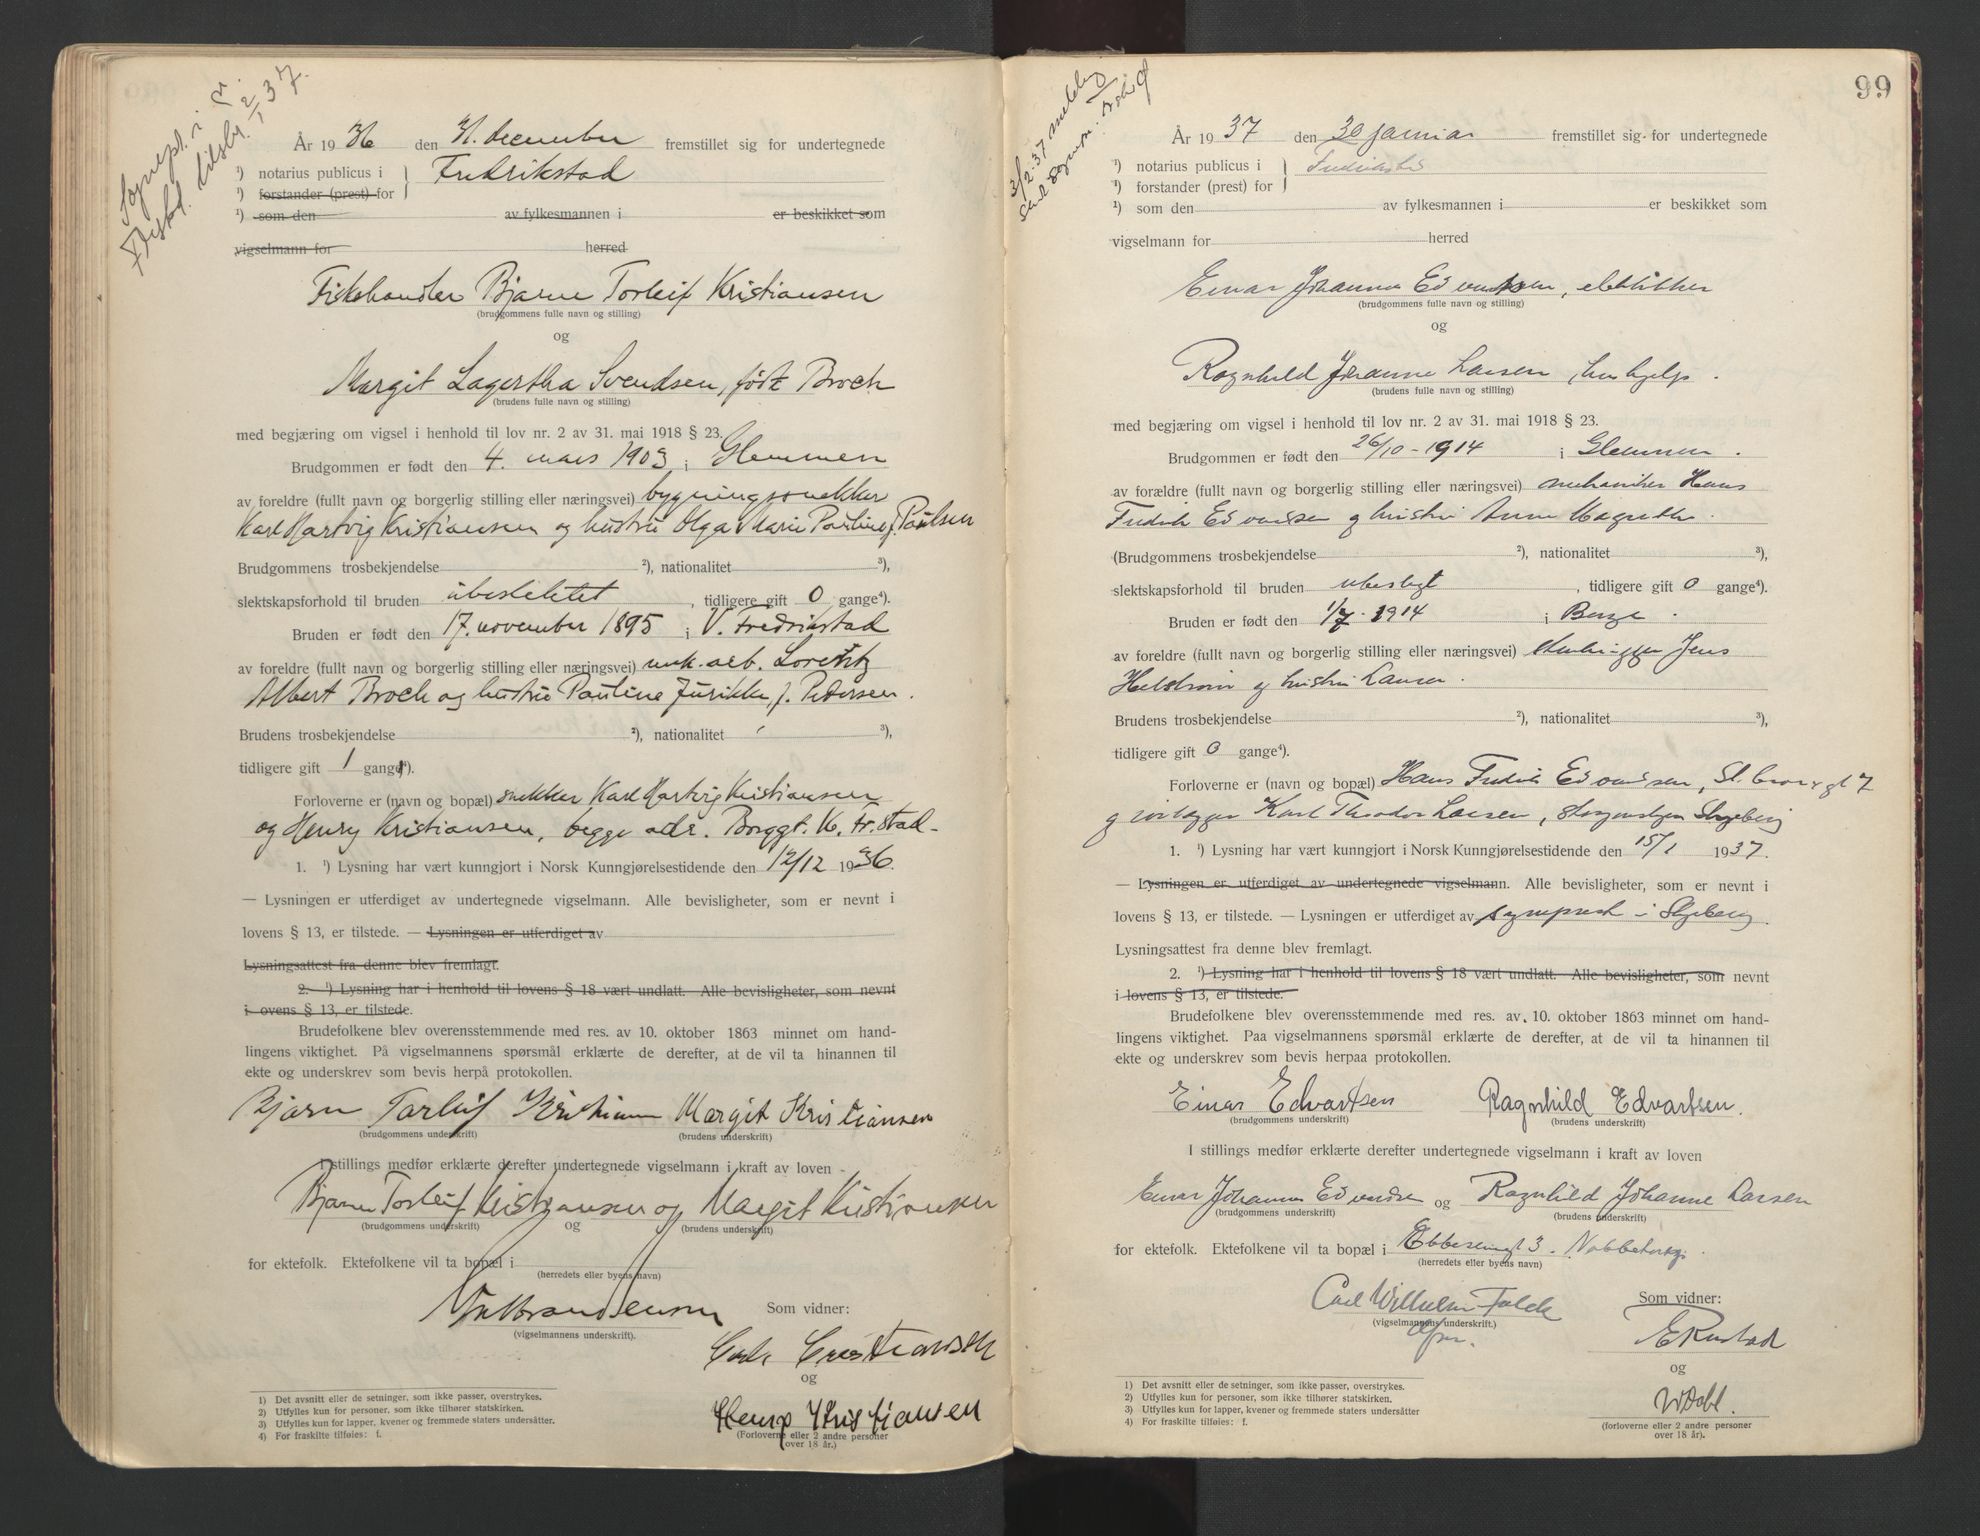 Sognepr. i
Fredrikst. tilskr. 2/1 37.
År 1936 den 31. december fremstillet sig for undertegnede
¹) notarius publicus i } Fredrikstad
¹) forstander (prest) for
¹) som den av fylkesmannen i er beskikket som
vigselmann for herred
Fiskehandler Bjarne Torleif Kristiansen
(brudgommens fulle navn og stilling)
og
Margit Lagertha Svendsen, født Broch
(brudens fulle navn og stilling)
med begjæring om vigsel i henhold til lov nr. 2 av 31. mai 1918 § 23.
Brudgommen er født den 4. mars 1903 i Glemmen
av foreldre (fullt navn og borgerlig stilling eller næringsvei) bygningssnekker
Karl Hartvig Kristiansen og hustru Olga Marie Pauline f. Paulsen
Brudgommens trosbekjendelse ²), nationalitet ³),
slektskapsforhold til bruden ubeslektet, tidligere gift 0 gange⁴).
Bruden er født den 17. november 1895 i V. Fredrikstad
av foreldre (fullt navn og borgerlig stilling eller næringsvei) mek. arb. Lorentz
Albert Broch og hustru Pauline Jurikke, f. Pedersen.
Brudens trosbekjendelse ²), nationalitet ³),
tidligere gift 1 gang⁴).
Forloverne er (navn og bopæl) snekker Karl Hartvig Kristiansen
og Henry Kristiansen, begge adr. Borggt. 16, Fr.stad.
1. ¹) Lysning har vært kunngjort i Norsk Kunngjørelsestidende den 12/12 1936.
— Lysningen er utferdiget av undertegnede vigselmann. Alle bevisligheter, som er nevnt i
lovens § 13, er tilstede. — Lysningen er utferdiget av
Lysningsattest fra denne blev fremlagt.
2. ¹) Lysning har i henhold til lovens § 18 vært undlatt. Alle bevisligheter, som nevnt
i ovens § 13, er tilstede.
Brudefolkene blev overensstemmende med res. av 10. oktober 1863 minnet om hand-
lingens viktighet. På vigselmannens spørsmål erklærte de derefter, at de vil ta hinannen til
ekte og underskrev som bevis herpå protokollen.
Bjarn Torleif Kristiansen Margit Kristiansen
(brudgommens underskrift) (brudens underskrift)
I stillings medfør erklærte derefter undertegnede vigselmann i kraft av loven
Bjarne Torleif Kristiansen og Margit Kristiansen
(brudgommens underskrift) og (brudens underskrift)
for ektefolk. Ektefolkene vil ta bopæl i
(herredets eller byens navn)
Som vidner:
(vigselmannens underskrift).
Cristiansen
og
Henry Kristiansen
(Forloverne eller 2 andre personer
over 18 år.)
1) Det avsnitt eller de setninger, som ikke passer, overstrykes.
2) Utfylles kun for personer, som ikke tilhører statskirken.
3) Utfylles kun for lapper, kvener og fremmede staters undersåtter.
4) For fraskilte tilføies: f.
99
3/2-37 melding
År 1937 den 30 januar fremstillet sig for undertegnede
¹) notarius publicus i } Fredrikstad
¹) forstander (prest) for
¹) som den av fylkesmannen i er beskikket som
vigselmann for herred
Einar Johannes Edvardsen, elektriker
(brudgommens fulle navn og stilling)
og
Ragnhild Johanne Larsen, hushjelp.
(brudens fulle navn og stilling)
med begjæring om vigsel i henhold til lov nr. 2 av 31. mai 1918 § 23.
Brudgommen er født den 26/10 - 1914 i Glemmen.
av forældre (fullt navn og borgerlig stilling eller næringsvei) mekaniker Hans
Fredrik Edvardsen og hustru Anna Magrethe.
(Brudgommens trosbekjendelse ²), nationalitet ³),
slektskapsforhold til bruden ubeslegt, tidligere gift 0 gange⁴).
Bruden er født den 1/7 - 1914 i Borge.
av foreldre (fullt navn og borgerlig stilling eller næringsvei) stenhugger Jens
og hustru Laura.
Brudens trosbekjendelse ²), nationalitet ³),
tidligere gift 0 gange⁴).
Forloverne er (navn og bopæl) Hans Fredrik Edvardsen,
og Karl Theodor Larsen, Skjeberg
1. ¹) Lysning har vært kunngjort i Norsk Kunngjørelsestidende den 15/1 1937.
— Lysningen er utferdiget av undertegnede vigselmann. Alle bevisligheter, som er nevnt i
lovens § 13, er tilstede. — Lysningen er utferdiget av sogneprest i Skjeberg.
Lysningsattest fra denne blev fremlagt.
2. ¹) Lysning har i henhold til lovens § 18 vært undlatt. Alle bevisligheter, som nevnt
i lovens § 13, er tilstede.
Brudefolkene blev overensstemmende med res. av. 10. oktober 1863 minnet om hand-
lingens viktighet. Paa vigselmannens spørsmål erklærte de derefter, at de vil ta hinannen til
ekte og underskrev som bevis herpaa protokollen.
Einar Edvartsen Ragnhild Edvartsen.
(brudgommens underskrift) (brudens underskrift)
I stillings medfør erklærte derefter undertegnede vigselmann i kraft av loven
Einar Johannes Edvardsen og Ragnhild Johanne Larsen
(brudgommens underskrift) (brudens underskrift)
for ektefolk. Ektefolkene vil ta bopæl i 3.
(herredets eller byens navn)
Carl Wilhelm Falck Som vidner:
(vigselmannens underskrift.)
E Rustad
og
W Dahl.
(forloverne eller 2 andre personer
over 18 år).
1) Det avsnitt eller de setninger, som ikke passer, overstrykes.
2) Utfylles kun for personer, som ikke tilhører statskirken.
3) Utfylles kun for lapper, kvener og fremmede staters undersåtter
4) For fraskilte tilføies: f.